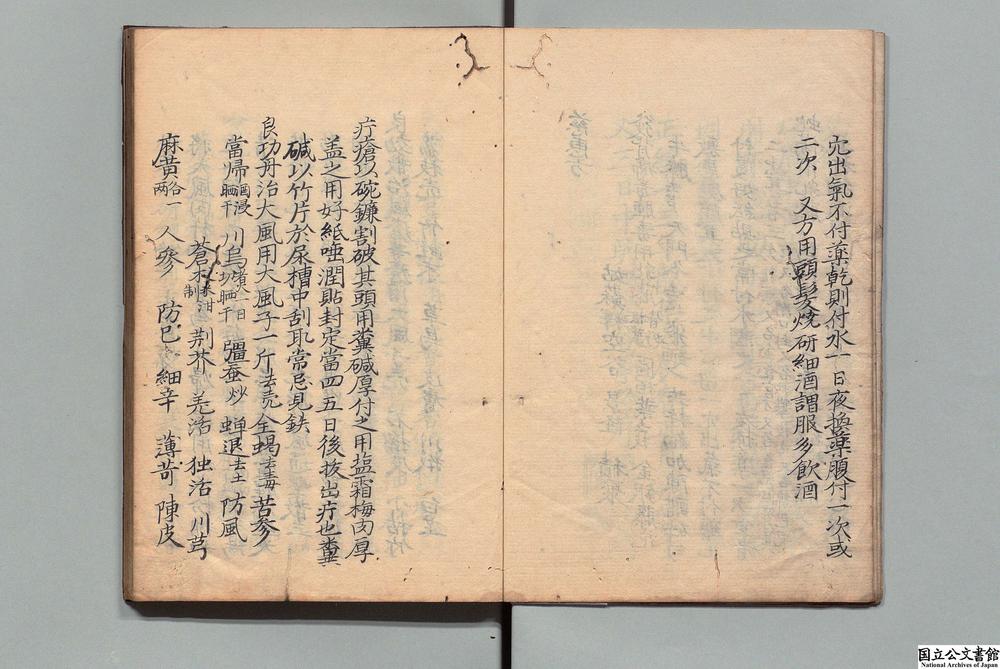 穴出氣不付藥乾則付水一日夜換藥腹付一次或
二次　又方用頭髪燒研細酒調服多飲酒
疔瘡以碗鐮割破其頭用糞碱厚付之用塩霜梅肉厚
盖之用好紙唾潤貼封定當四五日後拔出疔也糞
碱以竹片於尿槽中刮取常忌見鉄
良功丹治大風用大風子一斤去壳全蝎去毒苦参
當帰酒浸晒干川烏煮一日切晒干殭蚕炒蝉退去土防風
蒼朮米泔制荆芥羌活独活川芎
麻黄各一两人参防巳細辛薄苛陳皮
国立公文書館
National Archives of Japan